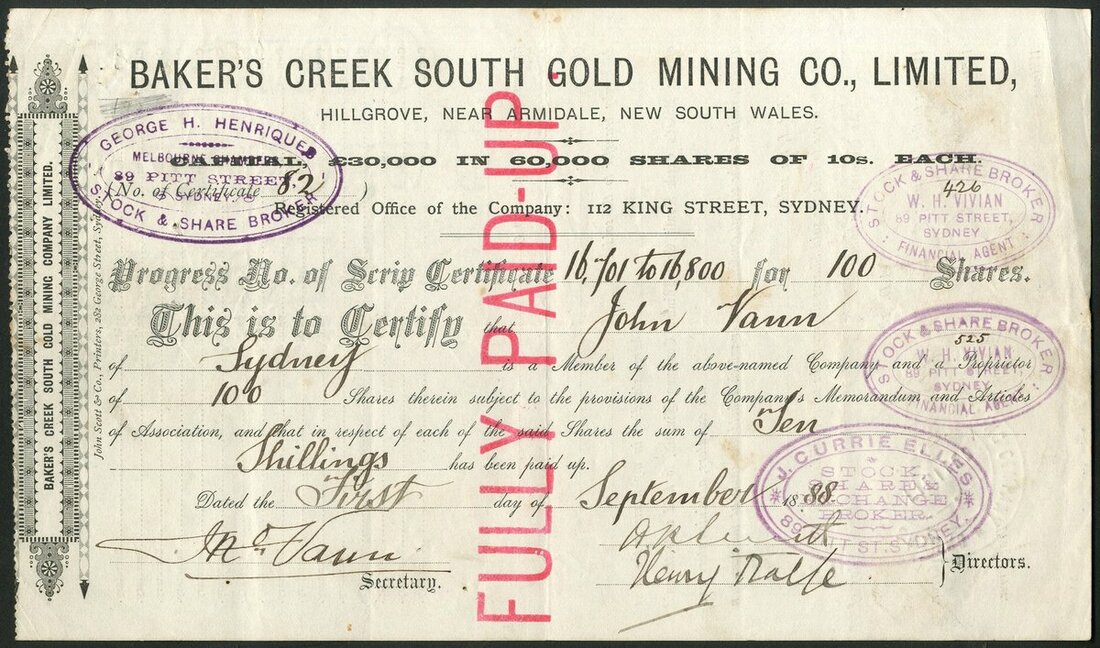 BAKER'S CREEK SOUTH GOLD MINING CO., LIMITED,
HILLGROVE, NEAR ARMIDALE, NEW SOUTH WALES.
CAPITAL, £30,000 IN 60,000 SHARES OF 10s. EACH.
(No. of Certificate 82)
Registered Office of the Company: 112 KING STREET, SYDNEY.
Progress No. of Scrip Certificate 16,701 to 16,800 for 100 Shares.
This is to Certify that John Vann
of Sydney is a Member of the above-named Company and a Proprietor
of 100 Shares therein subject to the provisions of the Company's Memorandum and Articles
of Association, and that in respect of each of the said Shares the sum of Ten
Shillings has been paid up.
Dated the First day of September 1888
Vann
Secretary.
Henry
Directors.
FULLY PAID-UP.
GEORGE H. HENRIQUES
MELBOURNE CHAMBERS
89 PITT STREET
SYDNEY
STOCK & SHARE BROKER
STOCK & SHARE BROKER
426
W. H. VIVIAN
89 PITT STREET,
SYDNEY
FINANCIAL AGENT
STOCK & SHARE BROKER
525
W. H. VIVIAN
89 PITT STREET
SYDNEY
FINANCIAL AGENT
J. CURRIE ELLES
STOCK,
SHARE &
EXCHANGE
BROKER.
89 PITT ST. SYDNEY.
BAKER'S CREEK SOUTH GOLD MINING COMPANY LIMITED.
John Scott & Co., Printers, George Street, Sydney